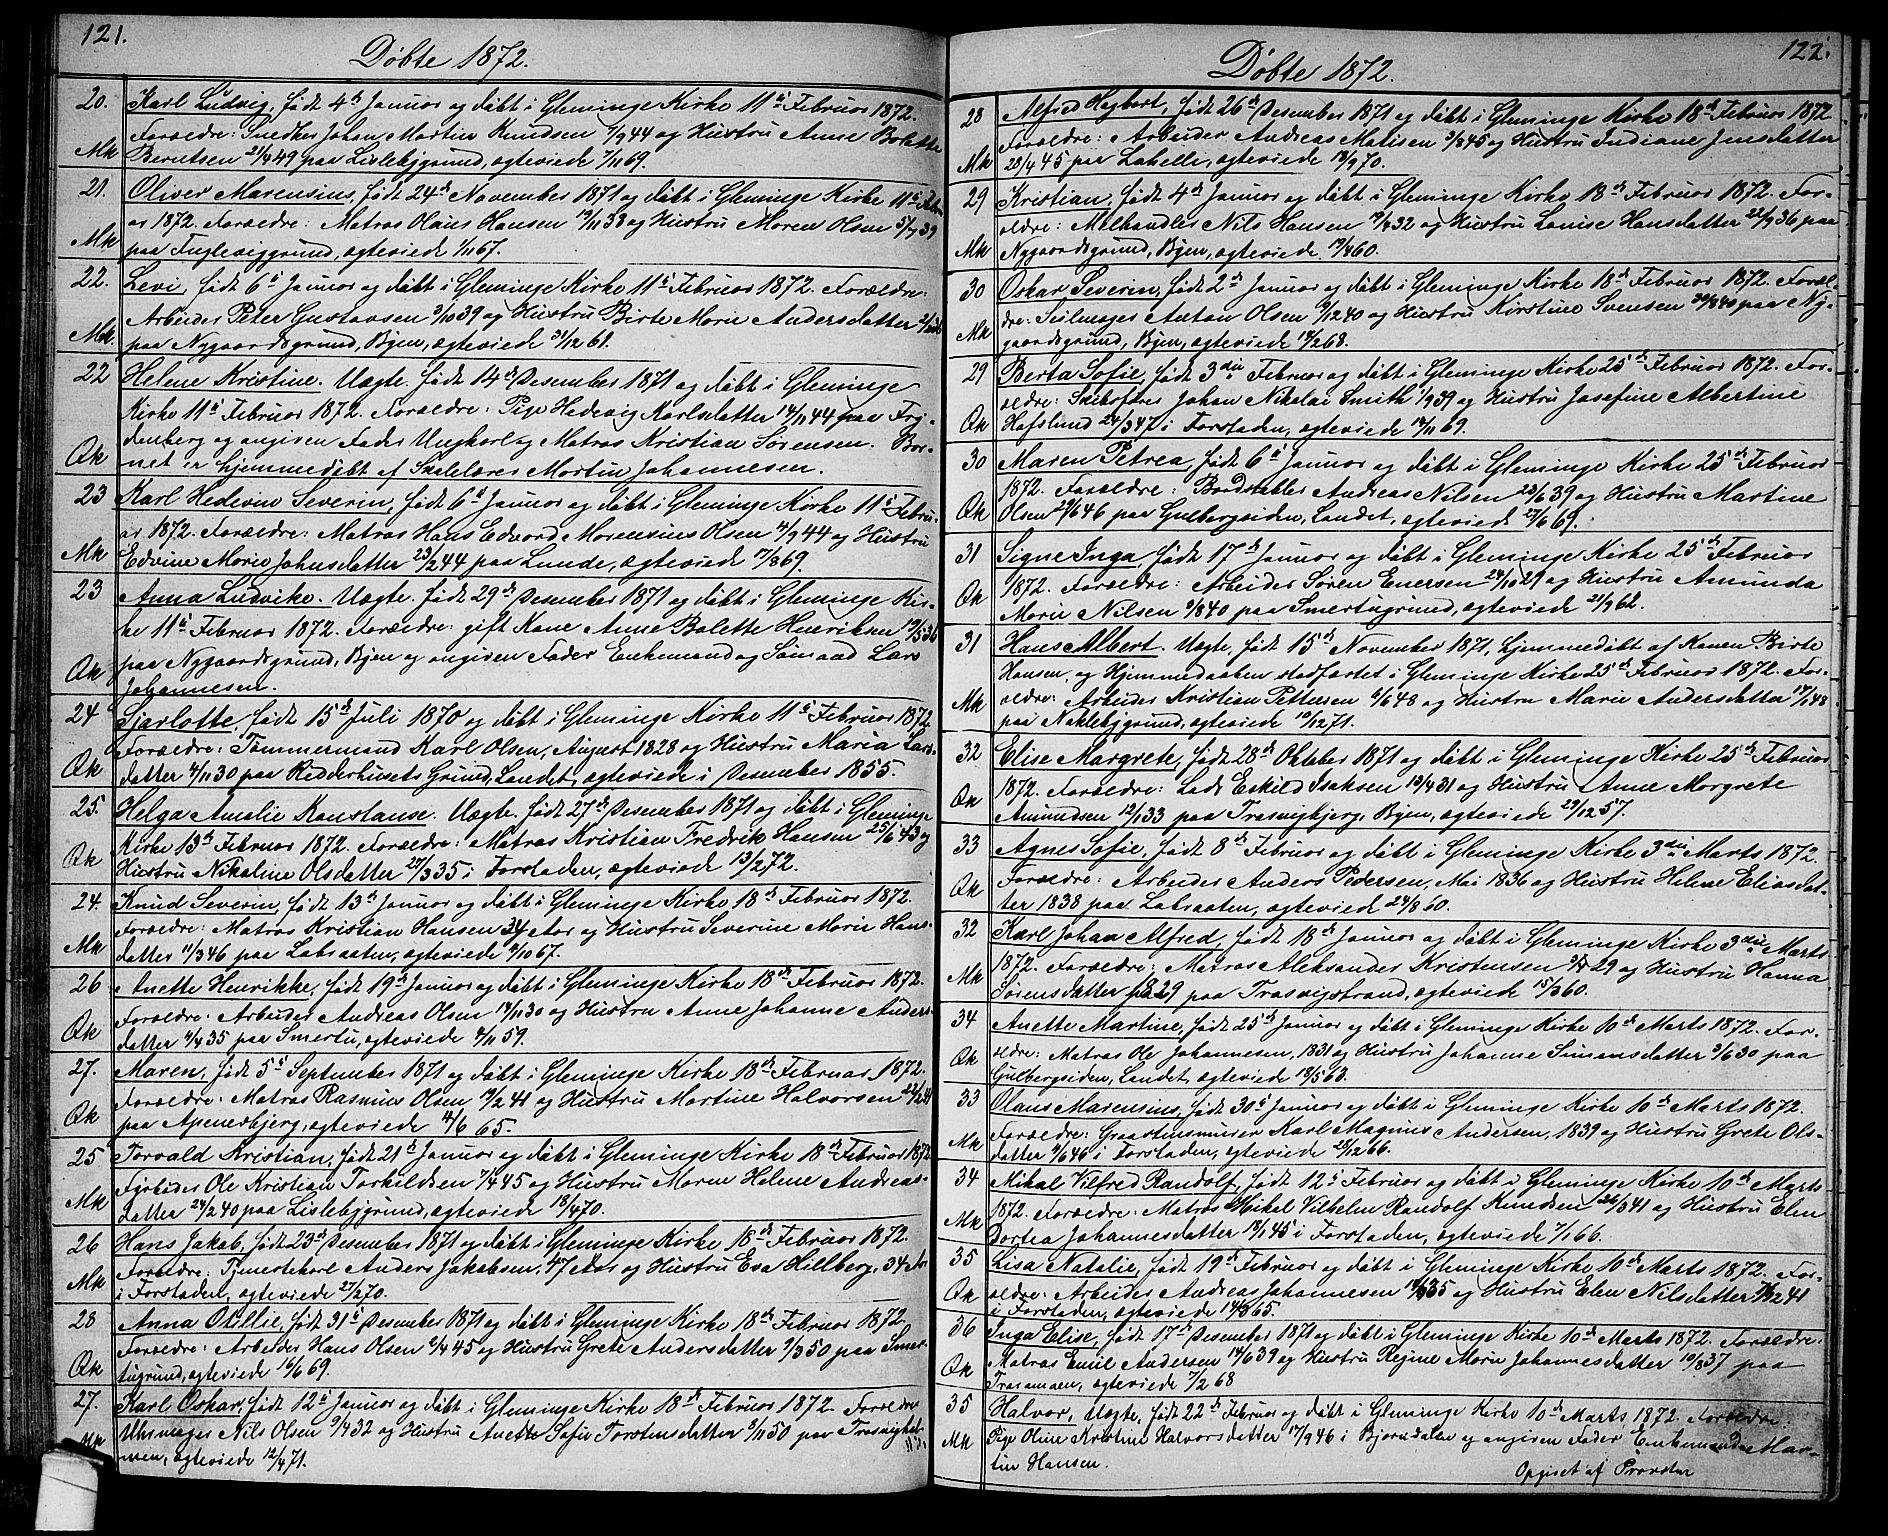 121.
Döbte 1872.
20. Karl Ludvig, födt 4de Januar og döbt i Gleminge Kirke 11te Februar 1872.
Foreldre: Snedker Johan Martin Knudsen 44 og Hustru Anne Bolette
Mk Berntsen 21/4 49 paa Lislebygrund, egteviede 7/11 69.
21. Oliver Marensius, födt 24de November 1871 og döbt i Gleminge Kirke 11te Febru-
ar 1872. Foreldre: Matros Olaus Hansen 19/11 38 og Hustru Maren Olsen 5/9 39
Mk paa Fugleviggrund, egteviede 1/11 67.
22. Levi, födt 6te Januar og döbt i Gleminge Kirke 11te Februar 1872. Foreldre:
Arbeider Peter Gustavsen 3/10 39 og Hustru Birte Marie Andersdatter
Mk. paa Nygaardsgrund, Byen, egteviede 31/12 61.
22 Helene Kristine. Uegte. födt 14de Desember 1871 og döbt i Gleminge
Kirke 11te Februar 1872. Foreldre: Pige Hedevig Karlsdatter 14/11 44 paa Fry-
denberg og angiven Fader Ungkarl og Matros Kristian Sörensen. Bar-
Qk net er hjemmedöbt af Skolelærer Martin Johannesen.
23 Karl Hedevin Severin, födt 6te Januar og döbt i Gleminge Kirke 11te Febru-
ar 1872. Foreldre: Matros Hans Edvard Marensius Olsen 4/9 44 og Hustru
Mk Edvine Marie Johnsdatter 23/2 44 paa Lunde, egteviede 17/8 69.
23 Anna Ludvike. Uegte. födt 29de Desember 1871 og döbt i Gleminge Kir-
ke 11te Februar 1872. Foreldre: gift Kone Anne Bolette Henriksen 19/5 36
Qk paa Nygaardsgrund, Byen og angiven Fader Enkemand og Sömand Lars
Johannesen.
24 Sjarlotte, födt 15de Juli 1870 og döbt i Gleminge Kirke 11te Februar 1872.
Foreldre: Tömmermand Karl Olsen, August 1828 og Hustru Maria Lars-
Qk datter 4/11 30 paa Ridderhusets Grund, Landet, egteviede i Desember 1855.
25. Helga Amalie Konstanse. Uegte. födt 27de Desember 1871 og döbt i Gleminge
Kirke 13de Februar 1872. Foreldre: Matros Kristian Fredrik Hansen 25/6 43 og
Qk Hustru Nikoline Olsdatter 27/3 35 i Forstaden, egteviede 13/2 72.
24. Knud Severin, födt 13de Januar og döbt i Gleminge Kirke 18de Februar 1872.
Foreldre: Matros Kristian Hansen 34 Aar og Hustru Severine Marie Hans-
Mk datter 11/3 46 paa Labraaten, egteviede 9/10 67.
26 Anette Henrikke, födt 19de Januar og döbt i Gleminge Kirke 18de Februar 1872.
Foreldre: Arbeider Andreas Olsen 14/11 30 og Hustru Anne Johanne Anders-
Qk datter 4/4 35 paa Smertu, egteviede 4/11 59.
27. Maren, födt 5te September 1871 og döbt i Gleminge Kirke 18de Februar 1872.
Foreldre: Matros Rasmus Olsen 19/2 41 og Hustru Martine Halvorsen
Qk paa Apenesbjerg, egteviede 4/6 65.
25 Torvald Kristian, födt 21de Januar og döbt i Gleminge Kirke 18de Februar 1872
Fyrböder Ole Kristian Torkildsen 7/4 45 og Hustru Maren Helene Andreas-
Mk datter 24/2 40 paa Lislebygrund, egteviede 18/4 70.
26 Hans Jakob, födt 23de Desember 1871 og döbt i Gleminge Kirke 18de Februar 1872.
Foreldre: Tjenestekarl Anders Jakobsen, 47 Aar og Hustru Eva Hillberg, 34 Aar
Mk i Forstaden, egteviede 27/2 70.
28 Anna Otillie, födt 31te Desember 1871 og döbt i Gleminge Kirke 18de Februar 1872.
Foreldre: Arbeider Hans Olsen 6/4 45 og Hustru Grete Andersdatter 9/3 50 paa Smer-
Qk tugrund, egteviede 16/6 69.
27. Karl Oskar, födt 12te Januar og döbt i Gleminge Kirke 18de Februar 1872. Foreldre
Uhrmager Nils Olsen 9/4 32 og Hustru Anette Sofie Torstensdatter 8/11 50 paa
Mk men, egteviede 12/4 71.
122.
Döbte 1872.
28 Alfred Hagbart, födt 26de Desember 1871 og döbt i Gleminge Kirke 18de Februar 1872.
Foreldre: Arbeider Andreas Matisen 3/8 45 og Hustru Indiane Jensdatter
Mk 28/4 45 paa Labelle, egteviede 18/9 70.
29 Kristian, födt 4de Januar og döbt i Gleminge Kirke 18de Februar 1872. For-
eldre: Melhandler Nils Hansen 19/4 32 og Hustru Lovise Hansdatter 22/9 36 paa
Mk Nygaardsgrund, Byen, egteviede 19/4 60.
30 Oskar Severin, födt 2de Januar og döbt i Gleminge Kirke 18de Februar 1872. Forel-
dre: Seilmager Anton Olsen 9/12 40 og Hustru Kirstine Svensen 30/8 40 paa Ny-
Mk gaardsgrund, Byen, egteviede 14/2 68.
29 Berta Sofie, födt 3die Februar og döbt i Gleminge Kirke 25de Februar 1872. For-
eldre: Skibsförer Johan Nikolai Smith 1/9 39 og Hustru Josefine Albertine
Qk Hafslund 24/3 47 i Forstaden, egteviede 14/11 69.
30 Maren Petrea, födt 6te Januar og döbt i Gleminge Kirke 25de Februar
1872. Foreldre: Bordstabler Andreas Nilsen 23/6 39 og Hustru Martine
Qk Olsen 29/6 46 paa Gulbergsiden, Landet, egteviede 27/6 69.
31 Signe Inga, födt 17de Januar og döbt i Gleminge Kirke 25de Februar
1872. Foreldre: Arbeider Sören Enersen 24/10 29 og Hustru Amunda
Qk Marie Nilsen 9/8 40 paa Smertugrund, egteviede 21/9 62.
31 Hans Albert. Uegte, födt 15de November 1871, hjemmedöbt af Konen Birte
Hansen, og Hjemmedaaben stadfæstet i Gleminge Kirke 25de Februar 1872. For-
Mk eldre: Arbeider Kristian Pettersen 6/6 48 og Hustru Marie Andersdatter 17/1 48
paa Naklebygrund, egteviede 19/12 71.
32 Elise Margrete, födt 28de Oktober 1871 og döbt i Gleminge Kirke 25de Februar
1872. Foreldre: Lods Eskild Isaksen 13/4 31 og Hustru Anne Margrete
Qk Amundsen 12/1 33 paa Trosvigbjerg, Byen, egteviede 29/12 57.
33 Agnes Sofie, födt 8de Februar og döbt i Gleminge Kirke 3die Marts 1872.
Foreldre: Arbeider Anders Pedersen, Mai 1836 og Hustru Helene Eliasdat-
Qk ter 1838 paa Labraaten, egteviede 24/8 60.
32 Karl Johan Alfred, födt 18de Januar og döbt i Gleminge Kirke 3die Marts
1872. Foreldre: Matros Aleksander Kristensen 29 og Hustru Hanna
Mk Sörensdatter 29 paa Trosvigstrand, egteviede 15/3 60.
34 Anette Martine, födt 25de Januar og döbt i Gleminge Kirke 10de Marts 1872. For-
Qk eldre: Matros Ole Johannesen, 1831 og Hustru Johanne Simensdatter 9/6 30 paa
Gulbergsiden, Landet, egteviede 18/5 63.
33 Olaus Marensius, födt 30te Januar og döbt i Gleminge Kirke 10de Marts 1872.
Mk Foreldre: Graastensmurer Karl Magnus Andersen, 1839 og Hustru Grete Ols-
datter 9/6 46 i Forstaden, egteviede 28/12 66.
34 Mikal Vilfred Randolf, födt 12te Februar og döbt i Gleminge Kirke 10de Marts
Mk 1872. Foreldre: Matros Mikel Vilhelm Randolf Knudsen 26/3 41 og Hustru Elen
Dortea Johannesdatter 19/1 45 i Forstaden, egteviede 7/1 66.
35 Lisa Natalie, födt 19de Februar og döbt i Gleminge Kirke 10de Marts 1872. For-
Qk eldre: Arbeider Andreas Johannesen 35 og Hustru Elen Nilsdatter 41
i Forstaden, egteviede 65.
36 Inga Elise, födt 17de Desember 1871 og döbt i Gleminge Kirke 10de Marts 1872. Foreldre:
Qk Matros Emil Andersen 14/6 39 og Hustru Regine Marie Johannesdatter 10/8 37 paa
egteviede 7/2 68
35 Halvor, Uegte, födt 22de Februar og döbt i Gleminge Kirke 10de Marts 1872. Foreldre:
Mk Pige Oline Kristine Halvorsdatter 17/9 46 i Bjorndalen og angiven Fader Enkemand Mar-
tin Hansen.
Opgiset af Provsten